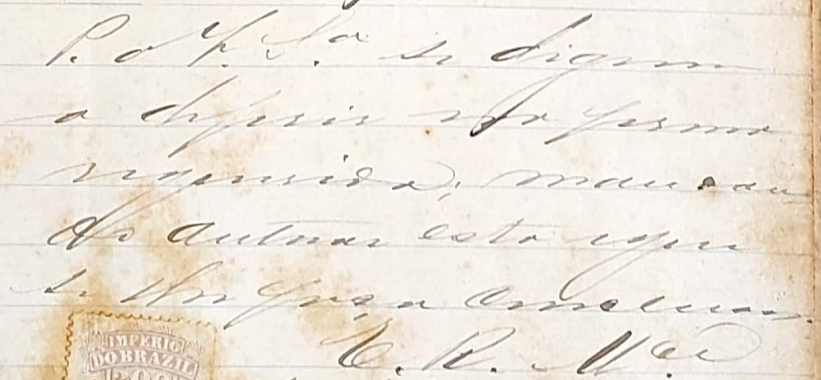 P. a V. S.ª se digne
a deferir na forma
requerida, mandan
do autuar esta e que
se lhe faça
E. R. M.ce
IMPERIO
DO BRAZIL